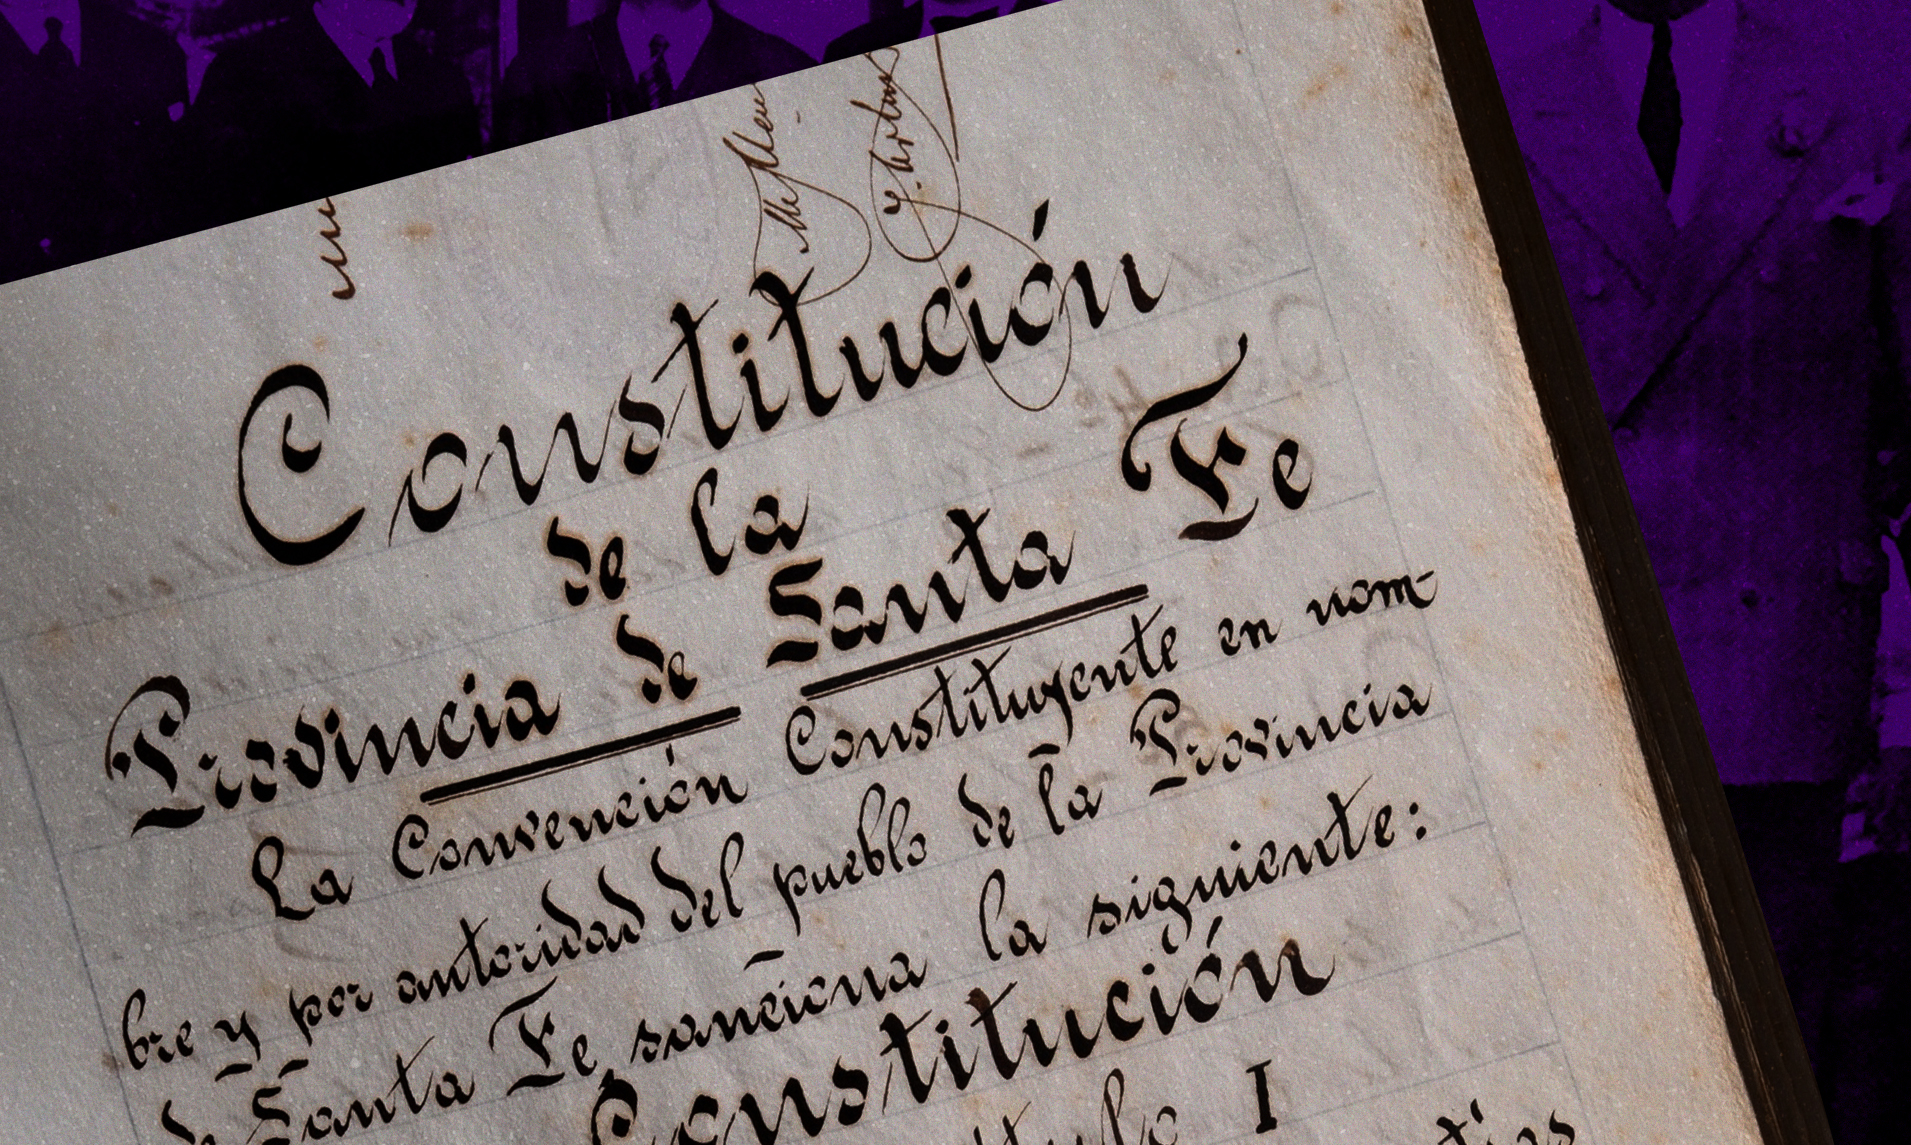 Constitución
de la
Provincia de Santa Fe
La Convención Constituyente en nom-
bre y por autoridad del pueblo de la Provincia
de Santa Fe, sanciona la siguiente:
Constitución
I